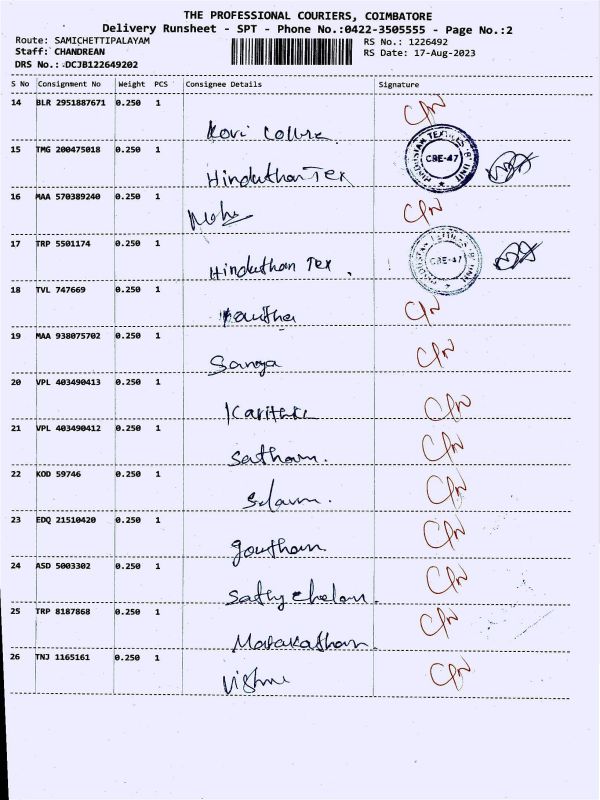 THE PROFESSIONAL COURIERS, COIMBATORE
Delivery Runsheet - SPT - Phone No.:0422-3505555 - Page No.:2
Route: SAMICHETTIPALAYAM RS No.: 1226492
Staff: CHANDREAN RS Date: 17-Aug-2023
DRS No.: DCJB122649202
S No Consignment No Weight PCS Consignee Details Signature
14 BLR 2951887671 0.250 1
Kovi
15 TMG 200475018 0.250 1 HINDUSTAN TEXTILES CBE-47
Hinduthan Tex
16 MAA 570389240 0.250 1
17 TRP 5501174 0.250 1 CBE-47
Hinduthan Tex
18 TVL 747669 0.250 1
19 MAA 938075702 0.250 1
Sanga
20 VPL 403490413 0.250 1
21 VPL 403490412 0.250 1
Satham.
22 KOD 59746 0.250 1
Selam.
23 EDQ 21510420 0.250 1
Goutham
24 ASD 5003302 0.250 1
25 TRP 8187868 0.250 1
Marakatham.
26 TNJ 1165161 0.250 1
Vishnu